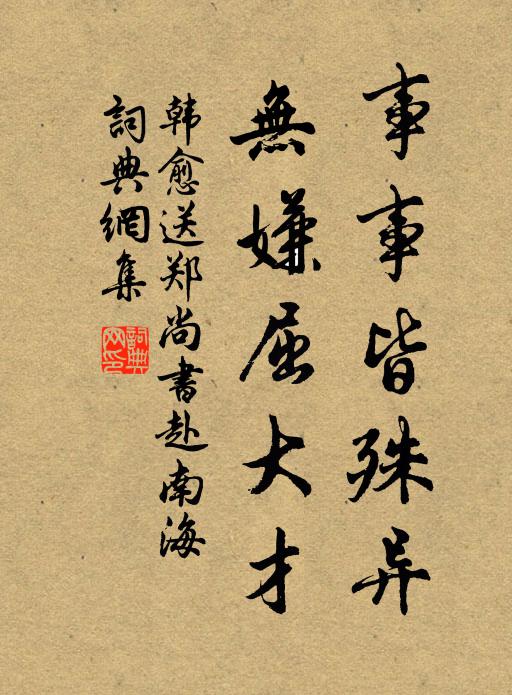 事事皆殊异
無嫌屈大才
韩愈送郑尚書赴南海
詞典網集
詞典网印